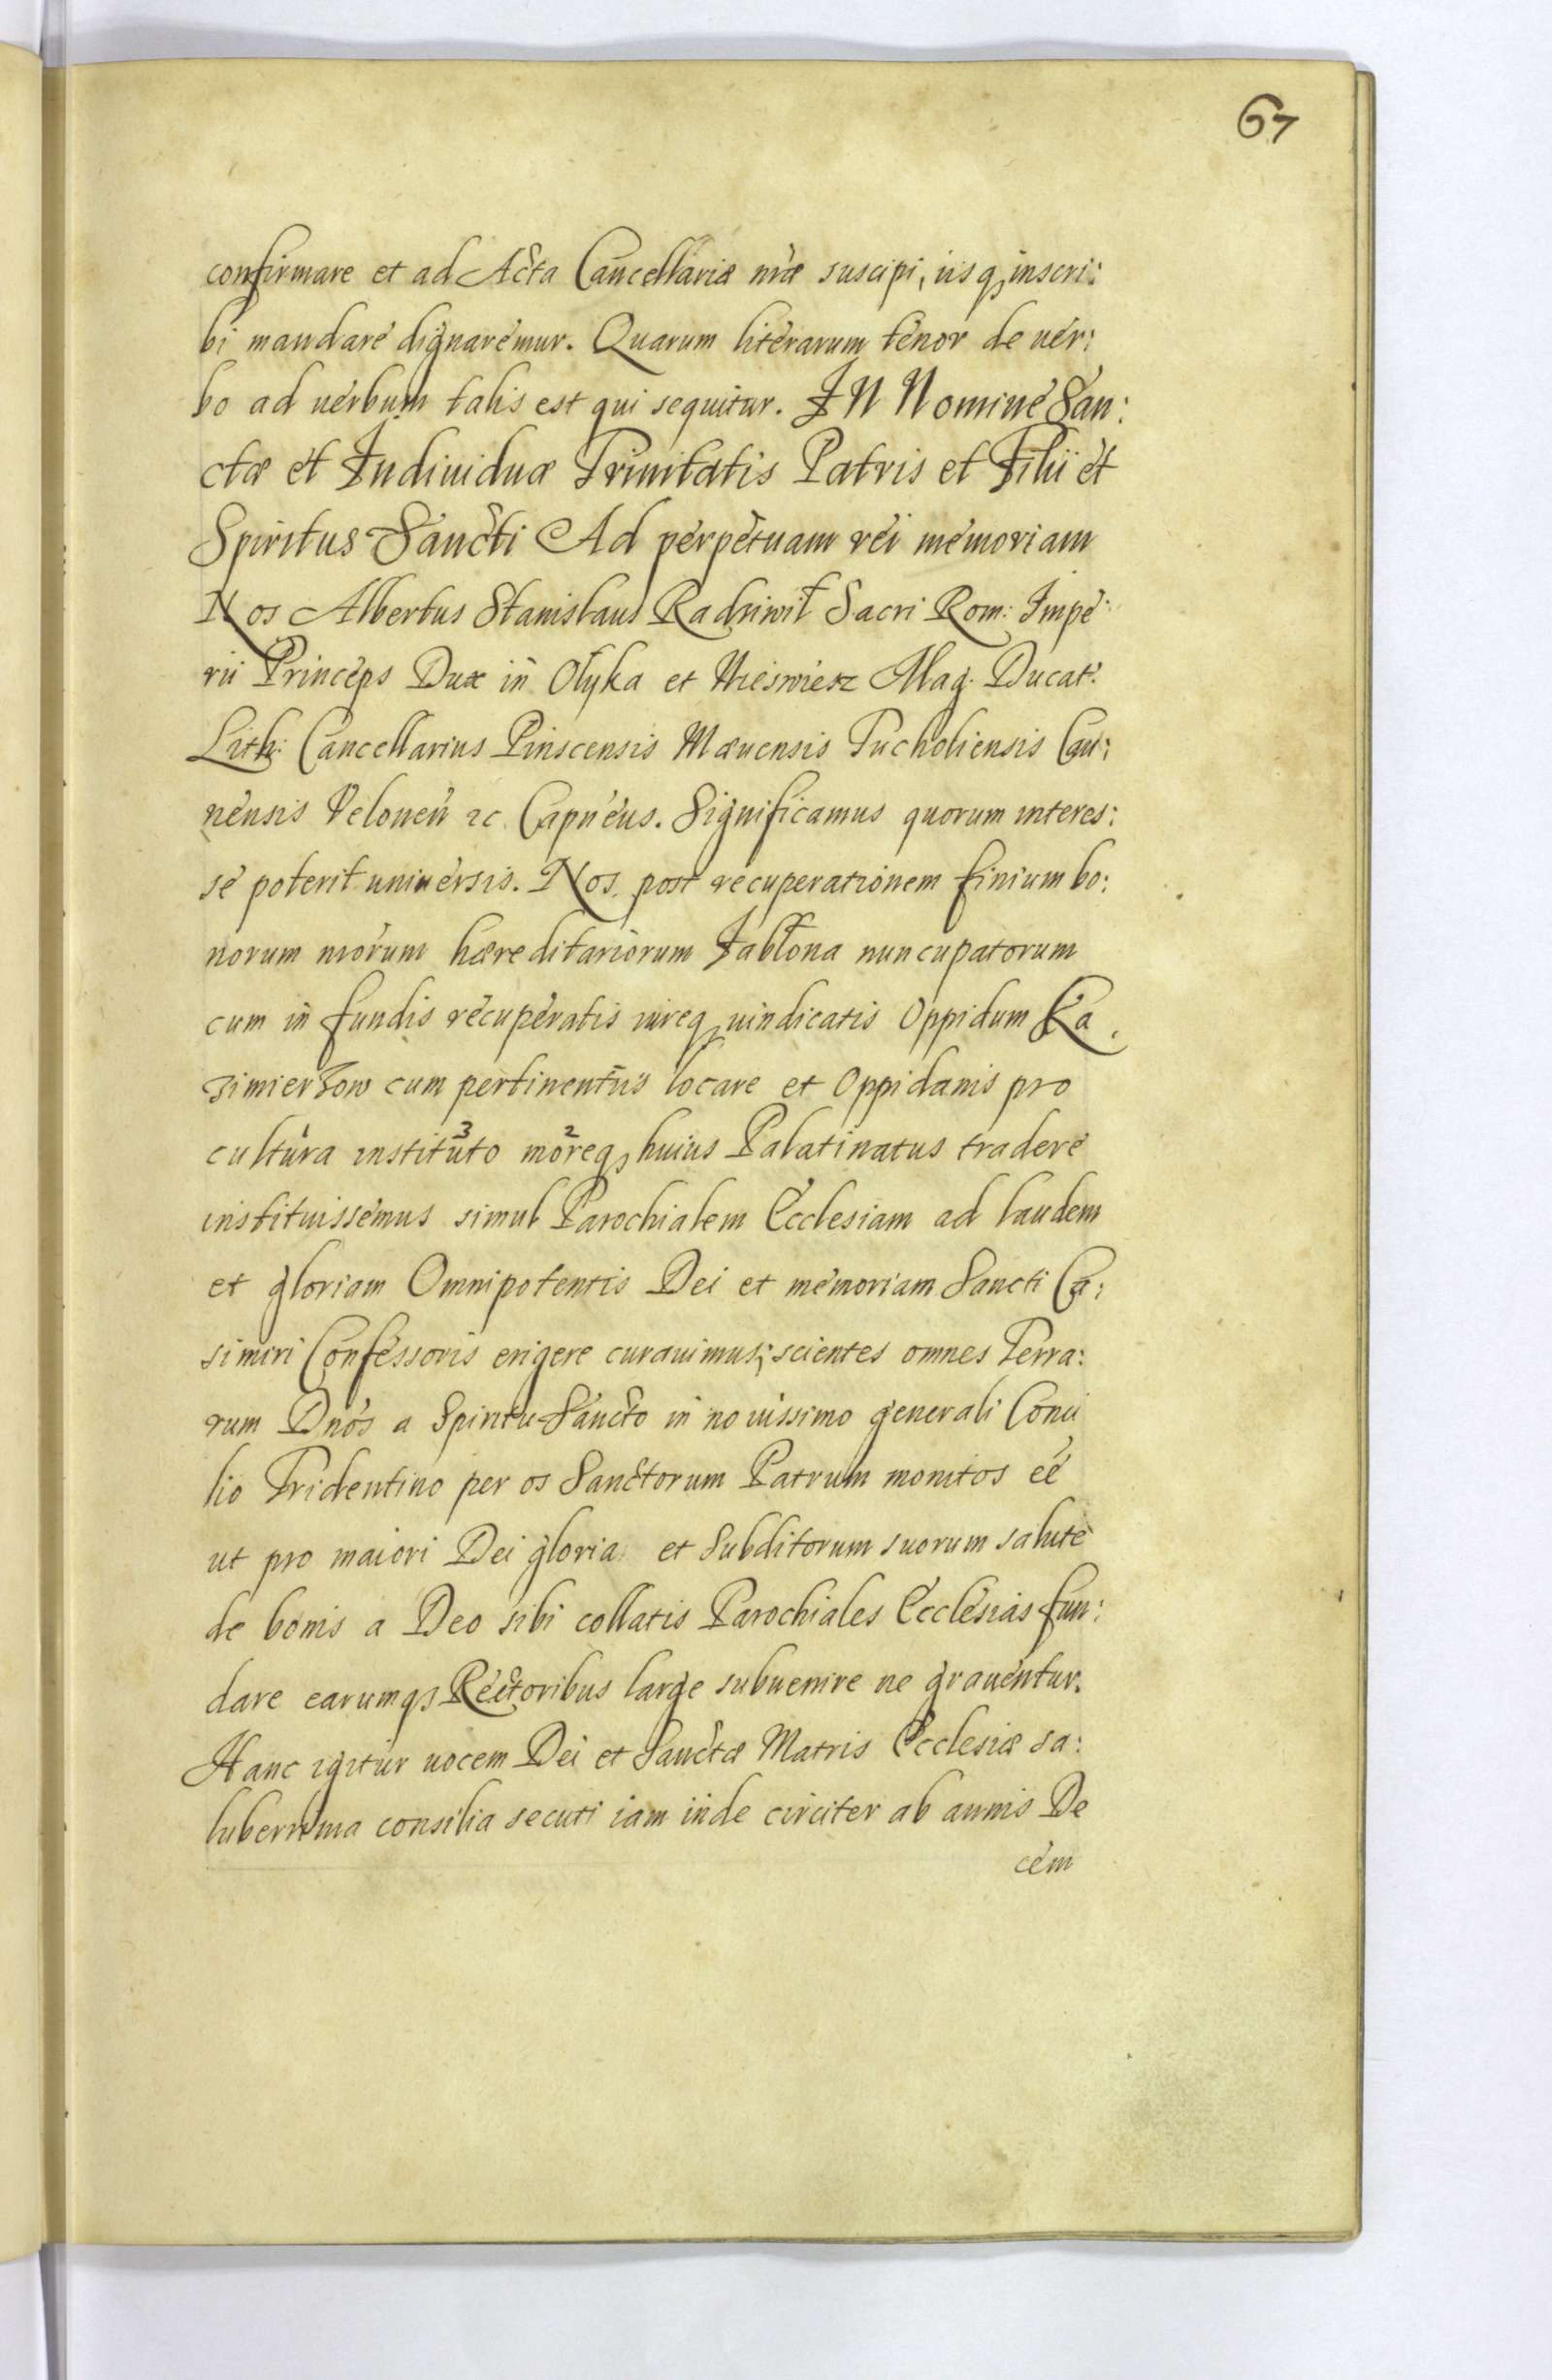 67
confirmare et ad Acta Cancellariæ nr̃æ suscipi, iisq₃ inscri:
bi mandare dignaremur. Quarum literarum tenor de uer:
bo ad uerbum talis est qui sequitur. IN Nomine San:
ctæ et Indiuiduæ Trinitatis Patris et Filii et
Spiritus Sancti Ad perpetuam rei memoriam
Nos Albertus Stanislaus Radziwił Sacri Rom: Impe
rii Princeps Dux in Ołyka et Nieswiesz Mag. Ducat:
Lith: Cancellarius Pinscensis Mæuensis Tucholiensis Cau:
nensis Velonen̄ ꝛc Capneus. Significamus quorum interes:
se poterit uniuersis. Nos post recuperationem finium bo:
norum nr̃orum hæreditariorum Jabłona nuncupatorum
cum in fundis recuperatis iureq₃ uindicatis Oppidum Ka
zimierzow cum pertinentiis locare et Oppidanis pro
cultura instituto3 moreq₃2 huius Palatinatus tradere
instituissemus simul Parochialem Ecclesiam ad laudem
et gloriam Omnipotentis Dei et memoriam Sancti Ca:
simiri Confessoris erigere curauimus; scientes omnes Terra:
rum Dnos a Spiritu Sancto in nouissimo generali Conci
lio Tridentino per os Sanctorum Patrum monitos eẽ
ut pro maiori Dei gloria et Subditorum suorum salute
de bonis a Deo sibi collatis Parochiales Ecclesias fun:
dare earumq₃ Rectoribus large subuenire ne grauentur.
Hanc igitur uocem Dei et Sanctæ Matris Ecclesiæ sa:
luberrima consilia secuti iam inde circiter ab annis De
cem